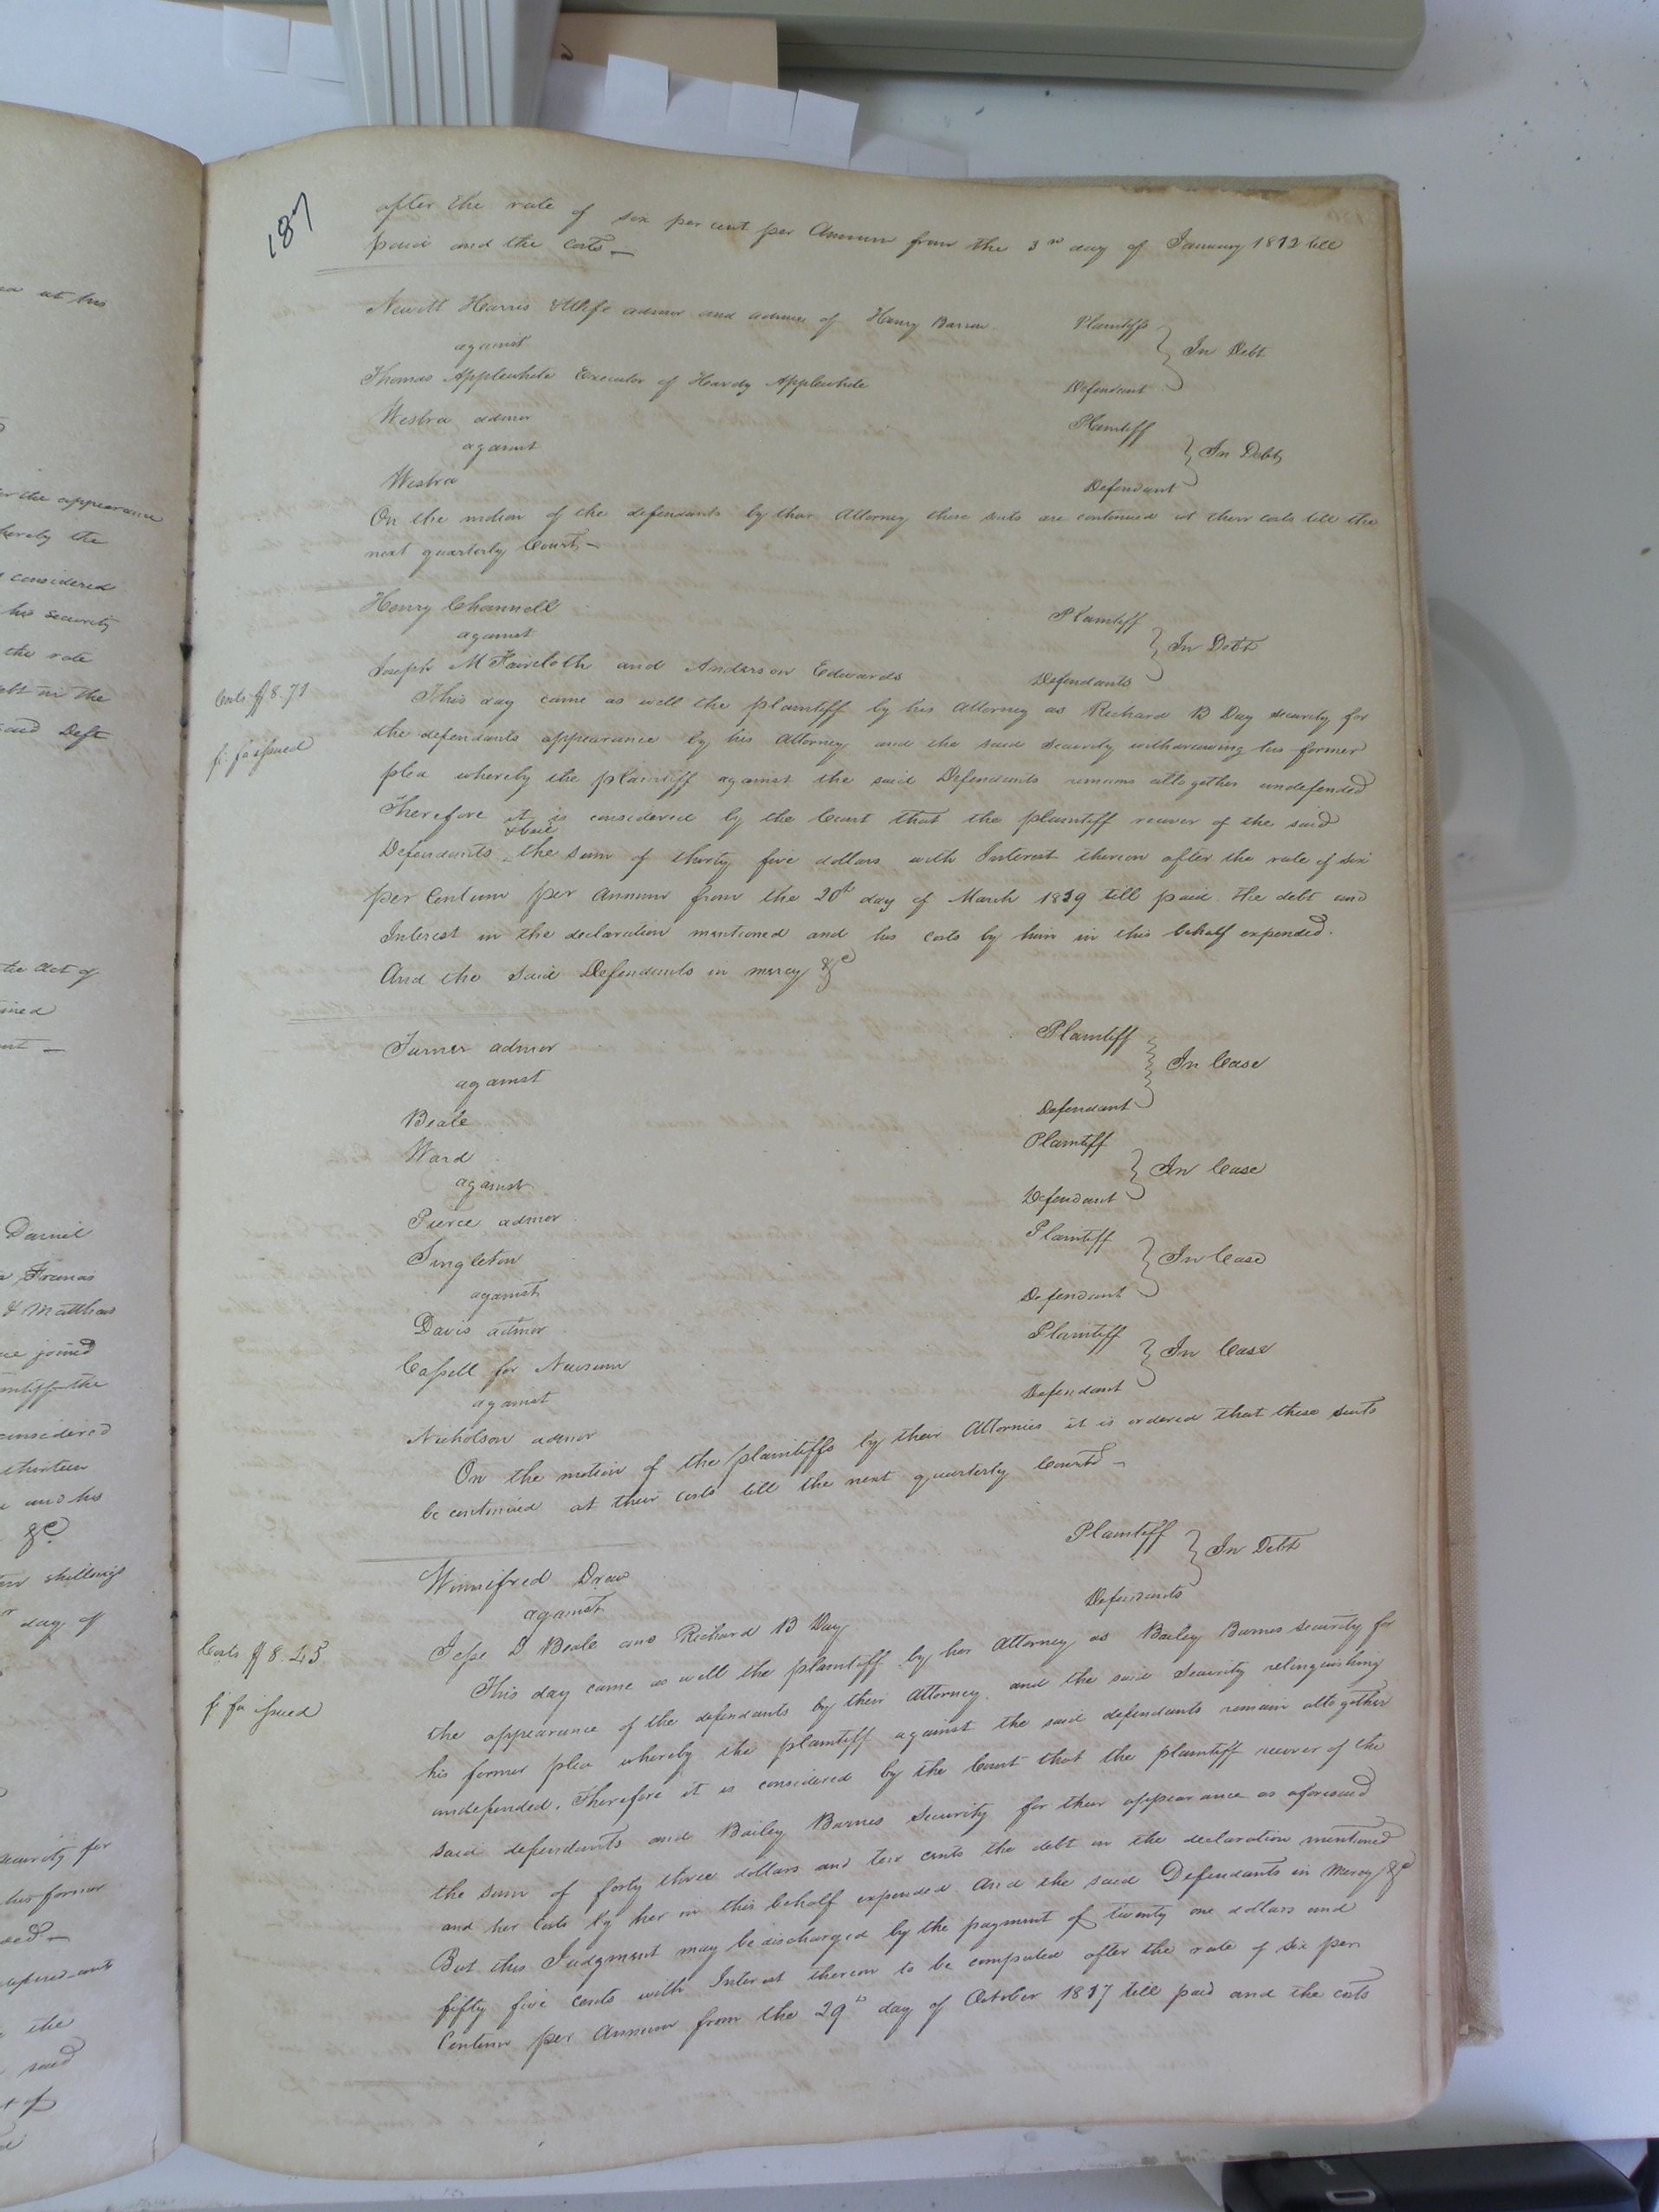 187
after the rate of six per cent per Annum from the 3rd day of January 1812 till
paid and the Costs —
Newitt Harris & Wife admor and admix of Henry Barrow Plaintiffs
against In Debt
Thomas Applewhite Executor of Hardy Applewhite Defendant
Westra admor Plaintiff
against In Debt
Westra Defendant
On the motion of the defendants by their Attorney these suits are continued at their costs till the
next quarterly Court —
Henry Channell Plaintiff
against In Debt
Joseph M Faircloth and Anderson Edwards Defendants
Costs $8.71
This day came as well the plaintiff by his Attorney as Richard B Day security for
fi fa issued
the defendants appearance by his Attorney and the said Security withdrawing his former
plea whereby the plaintiff against the said Defendants remains altogether undefended
Therefore it is considered by the Court that the plaintiff recover of the said
& bail
Defendants the sum of thirty five dollars with Interest thereon after the rate of six
per Centum per Annum from the 20th day of March 1819 till paid. The debt and
Interest in the declaration mentioned and his costs by him in this behalf expended.
And the said Defendants in mercy &c
Turner admor Plaintiff
against In Case
Beale Defendant
Ward Plaintiff
against In Case
Pierce admor Defendant
Singleton Plaintiff
against In Case
Davis admor Defendant
Cassell for Newsum Plaintiff
against In Case
Nicholson admor Defendant
On the motion of the plaintiffs by their Attornies it is ordered that these suits
be continued at their costs till the next quarterly Court —
Winnifred Drew Plaintiff
against In Debt
Jesse D Beale and Richard B Day Defendants
Costs $8.45
This day came as well the plaintiff by her Attorney as Bailey Barnes security for
fi fa issued
the appearance of the defendants by their Attorney, and the said Security relinquishing
his former plea whereby the plaintiff against the said defendants remain altogether
undefended. Therefore it is considered by the Court that the plaintiff recover of the
said defendants and Bailey Barnes Security for their appearance as aforesaid
the sum of forty three dollars and ten cents the debt in the declaration mentioned
and her Costs by her in this behalf expended. And the said Defendants in Mercy &c
But this Judgment may be discharged by the payment of twenty one dollars and
fifty five cents with Interest thereon to be computed after the rate of six per
Centum per Annum from the 29th day of October 1817 till paid and the costs